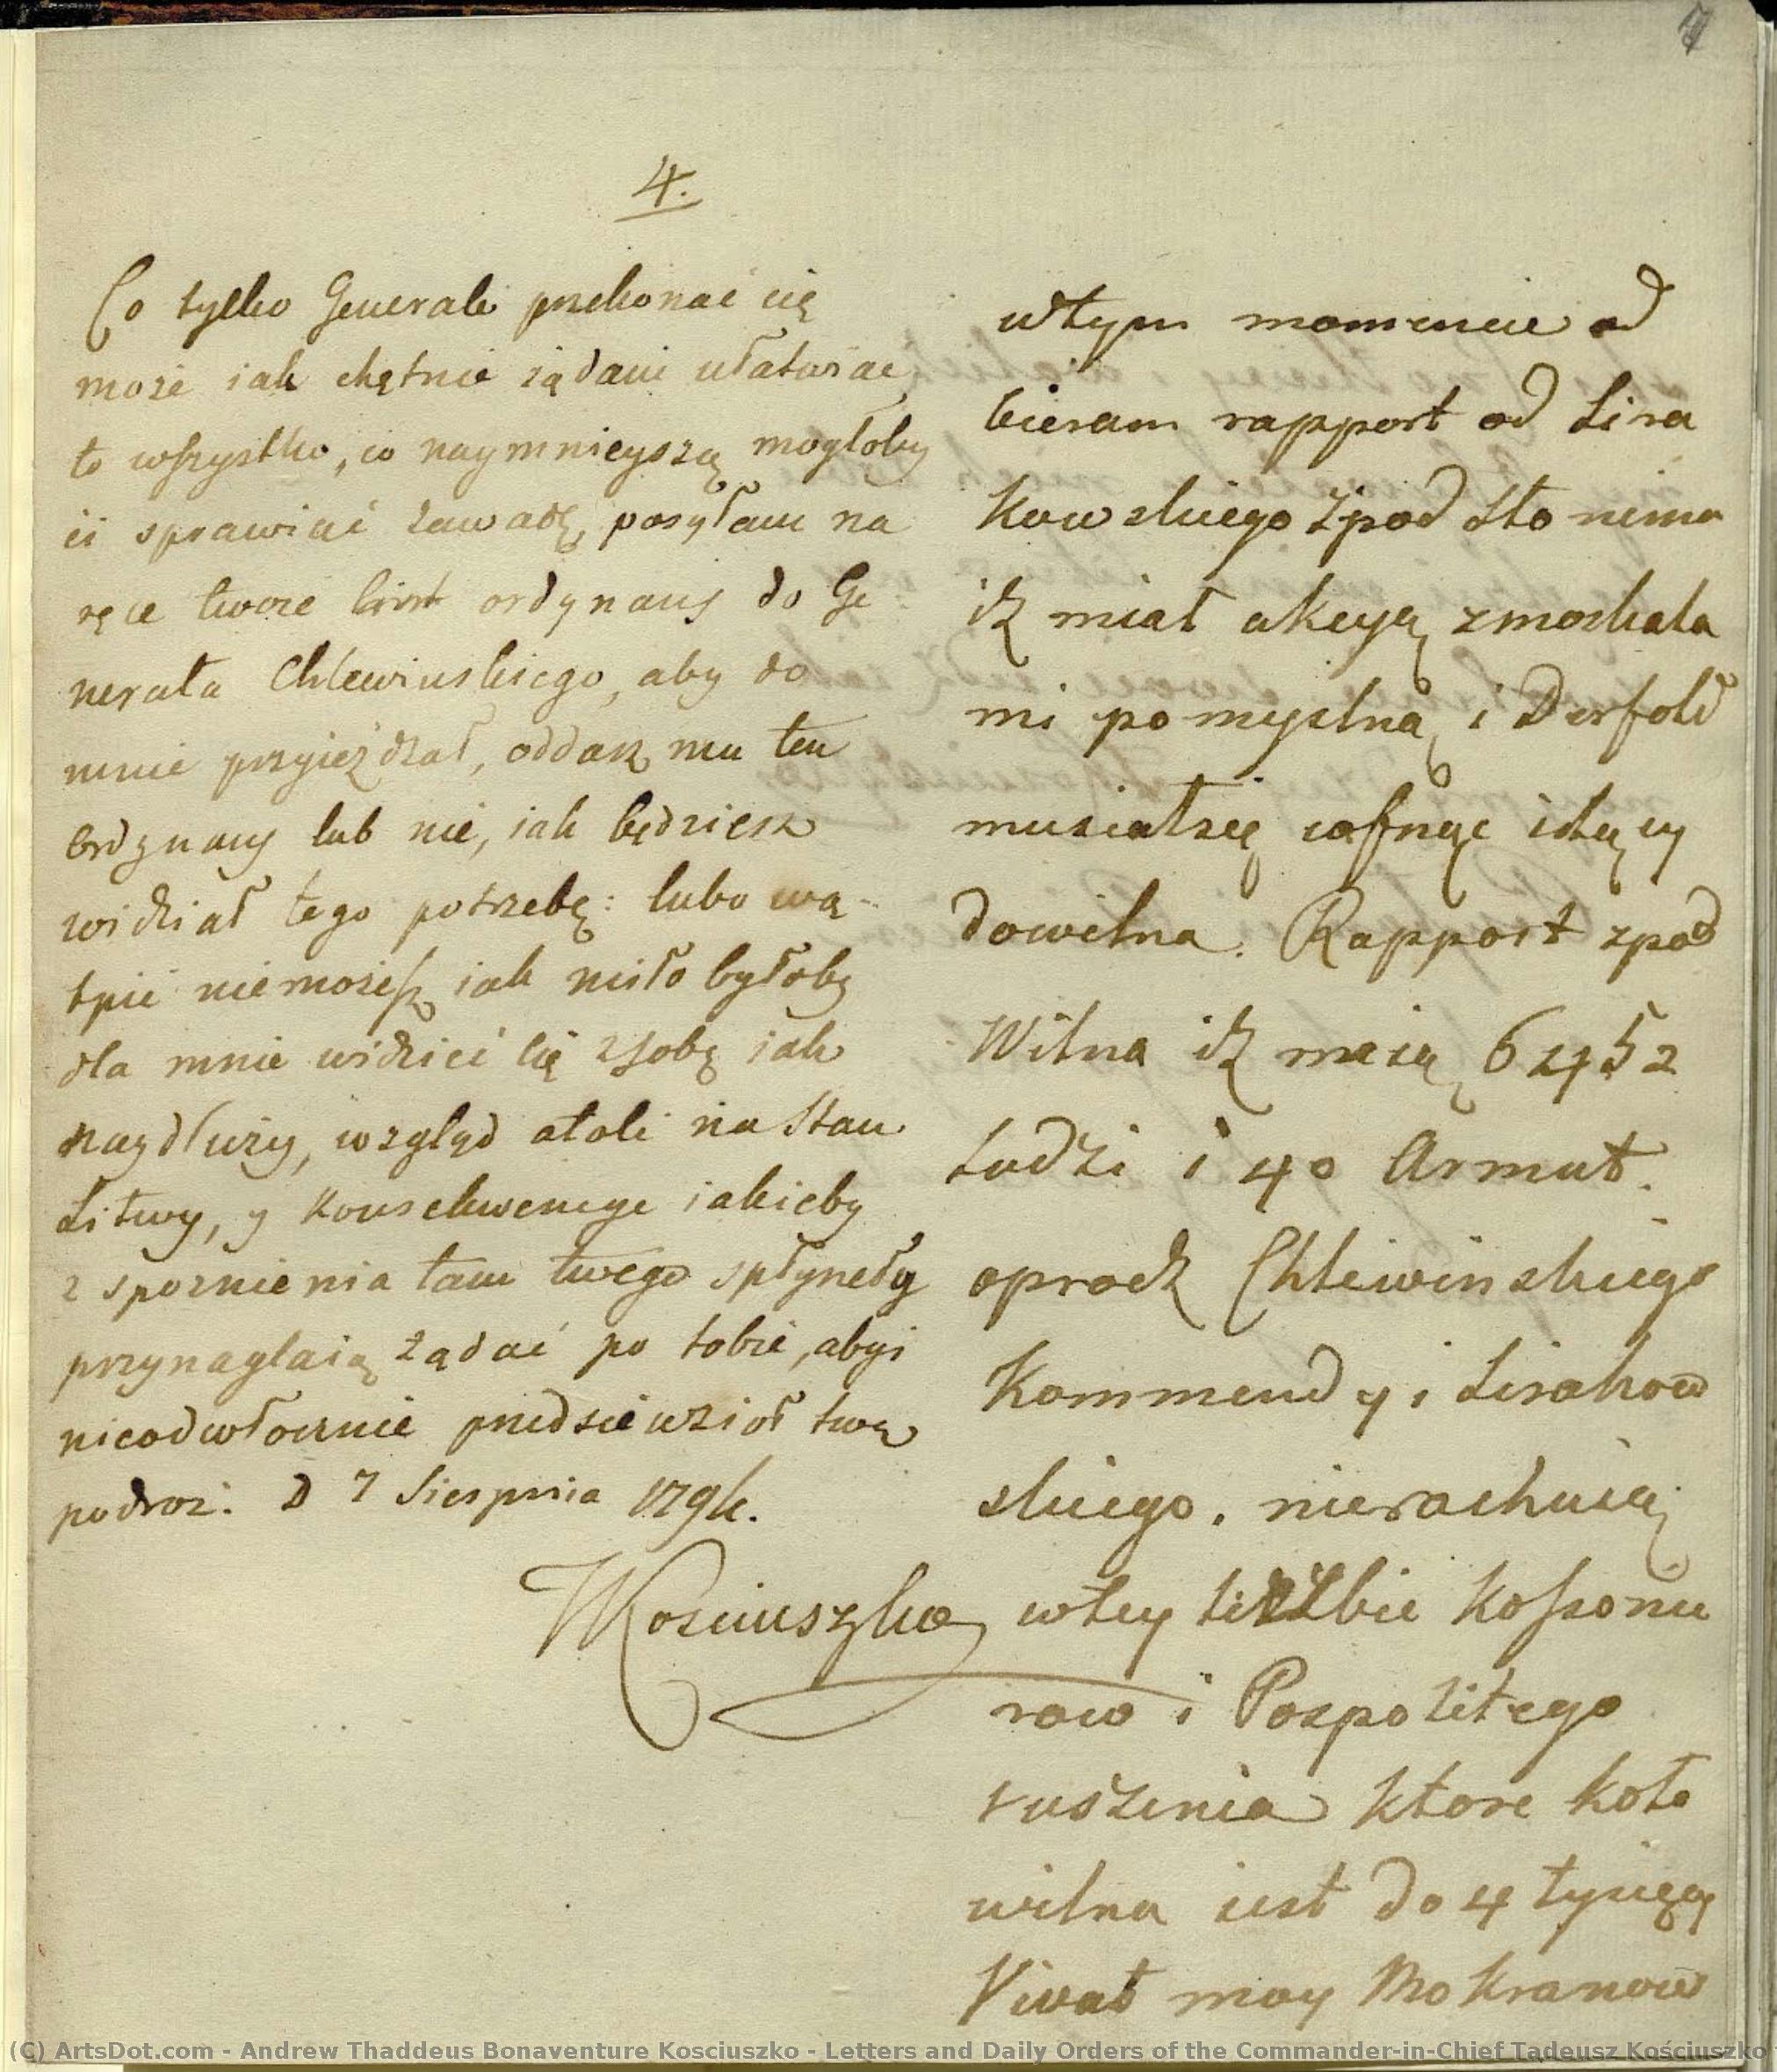 7
4.
Co tylko Generale przekonać cię
może iak chętnie żądani ułatwiać
to wszystko, co naymnieyszą mogłoby
ci sprawiać zawadę, posyłam na
ręce twoie ordynans do Ge
nerała Chlewinskiego, aby do
mnie przyieżdżał, oddasz mu ten
ordynans lub nie, iak będziesz
widział tego potrzebę: lubo wą-
tpić niemożesz iak miło byłoby
dla mnie widzieć się z sobą iak
naydłuży, wzgląd atoli na Stan
Litwy, y konsekwencye iakieby
z spoznienia tam twego spłynęły
przynaglaią żądać po tobie, abyś
nieodwłocznie przedsiewzioł twą
podroż. D 7 Sierpnia 1794.
TKosciuszko
wtym momencie od
bieram rapport od Sira
kowskiego zpod Słonima
iż miał akcyą zmoskala
mi pomyslną i Derfeld
musiałsię cofnąc idący
dowilna. Rapport zpod
Wilna iż maią 6452
Ludzi i 40 Armat.
oprocz Chlewinskiego
Kommendy i Sirakow
skiego. nierachuiąc
wtey liczbie Kossonie
row i Pospolitego
ruszenia ktore koło
wilna iest do 4 tysięcy
Vivat moy Mokranow
(C) ArtsDot.com - Andrew Thaddeus Bonaventure Kosciuszko - Letters and Daily Orders of the Commander-in-Chief Tadeusz Kościuszko